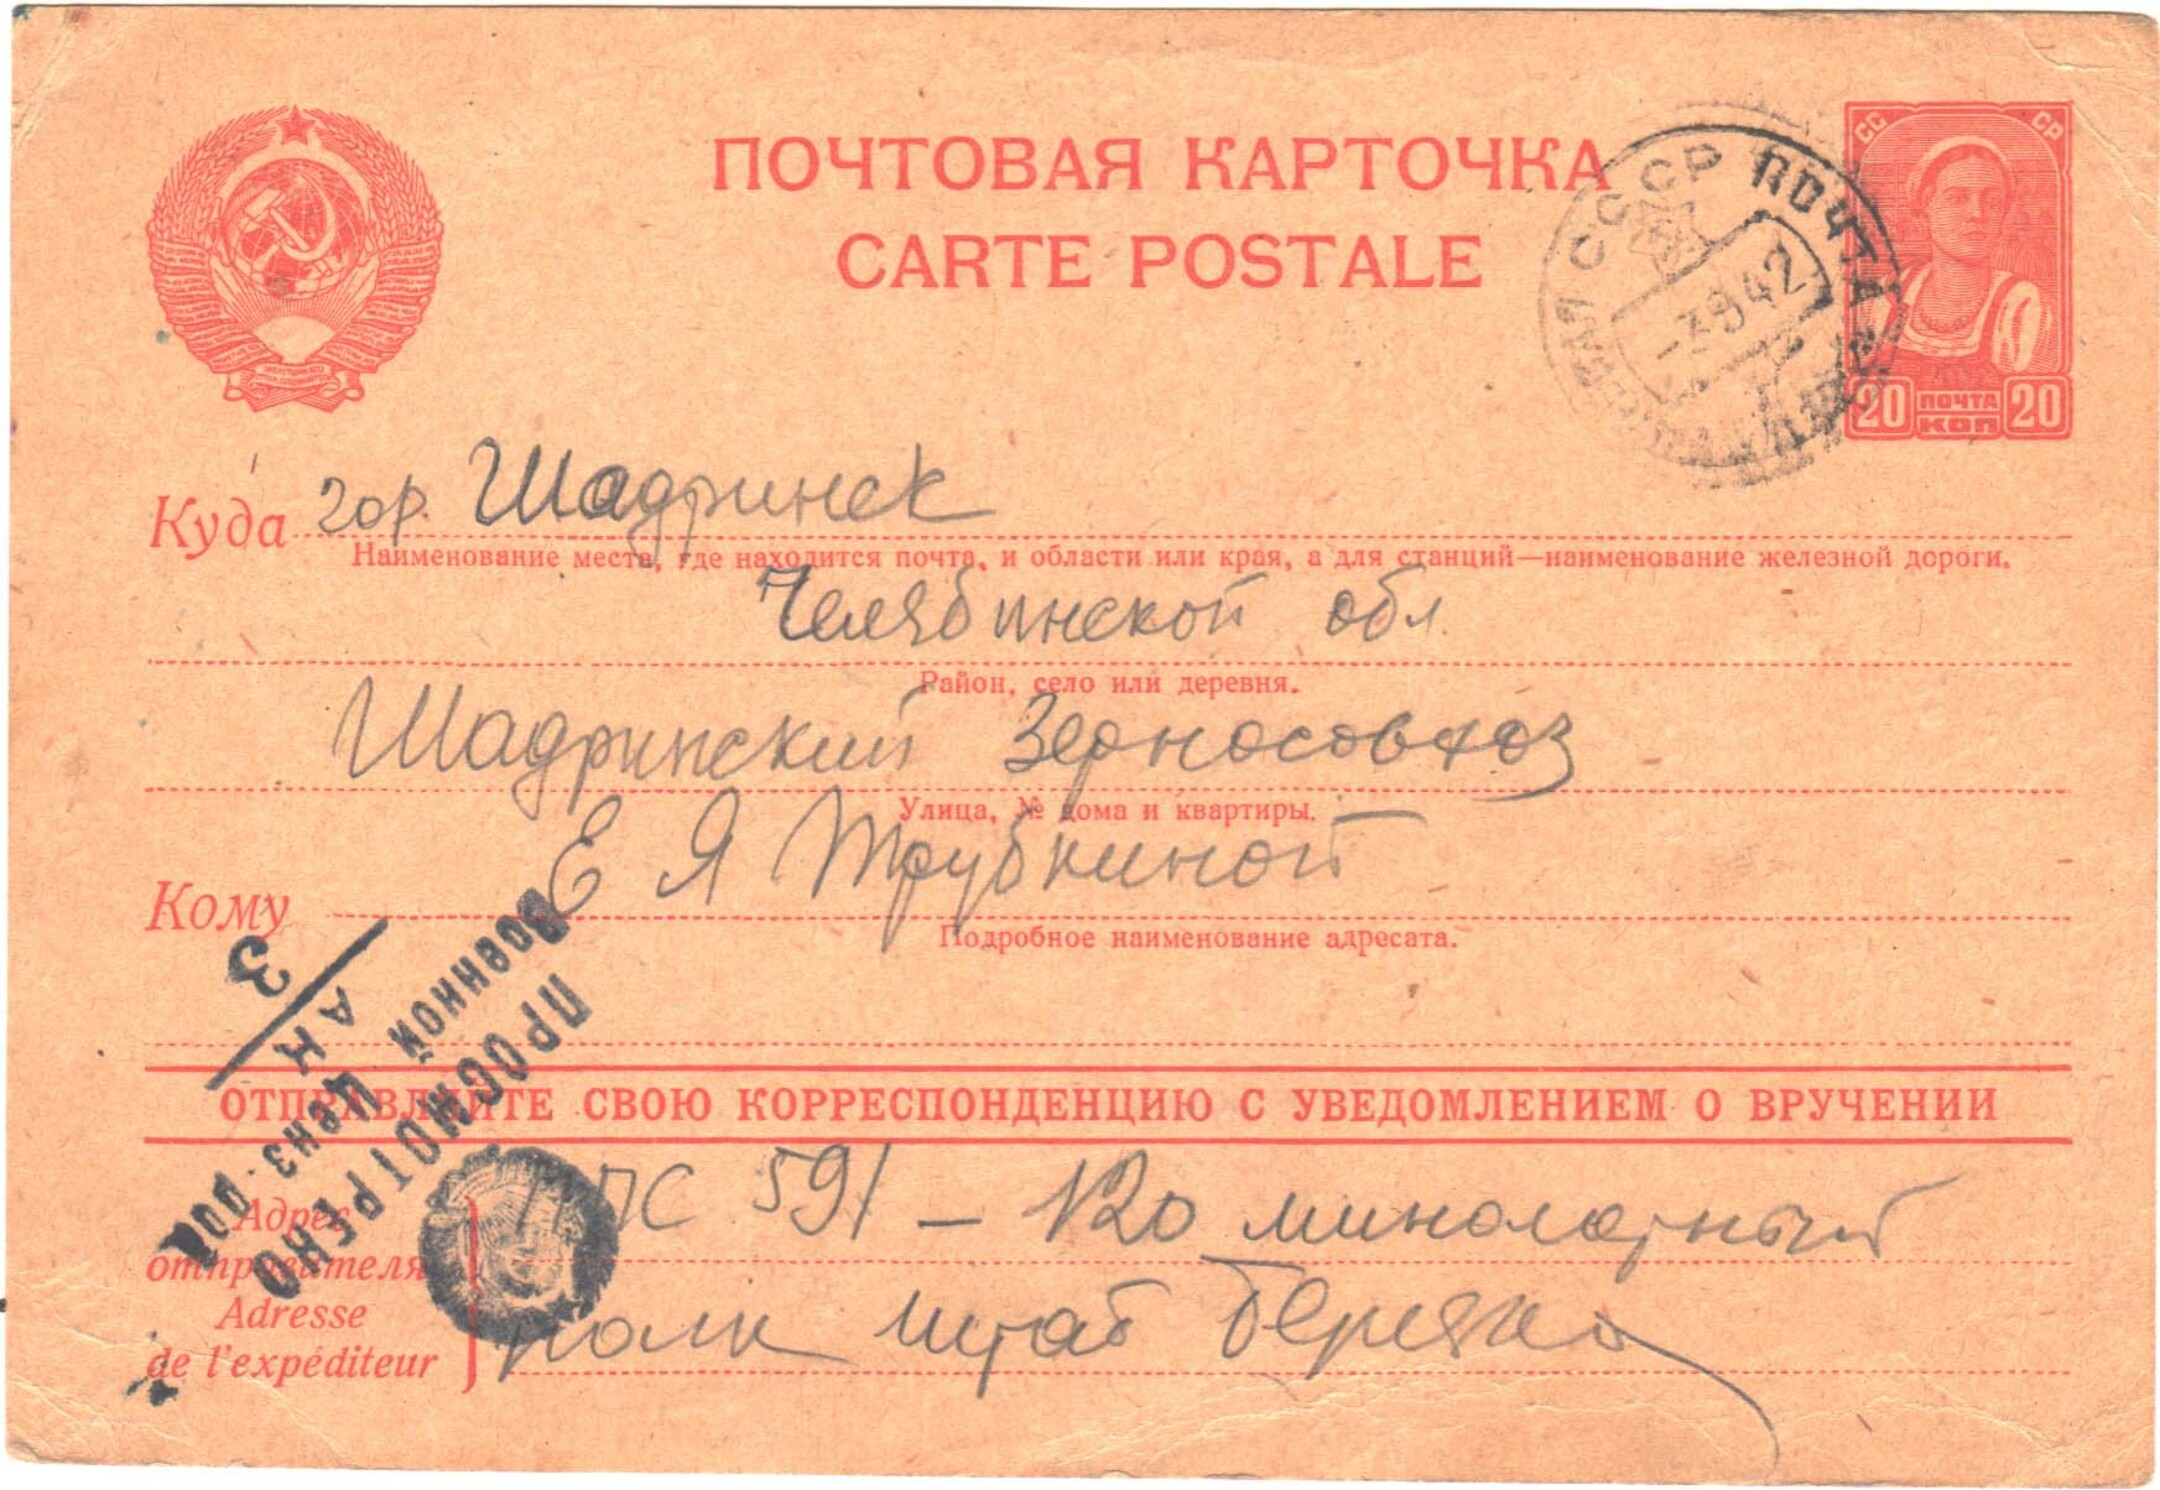 ПОЧТОВАЯ КАРТОЧКА
CARTE POSTALE
СССР ПОЧТА
9 42
СС СР
20 ПОЧТА КОП 20
Куда гор. Шадринск
Наименование места, где находится почта, и области или края, а для станций—наименование железной дороги.
Челябинской обл.
Район, село или деревня.
Шадринский Зерносовхоз
Улица, № дома и квартиры.
Кому Е Я Трубкиной
Подробное наименование адресата.
ПРОСМОТРЕНО
Военной Ценз
3
ОТПРАВЛЯЙТЕ СВОЮ КОРРЕСПОНДЕНЦИЮ С УВЕДОМЛЕНИЕМ О ВРУЧЕНИИ
Адрес ППС 591 — 120 минометный
отправителя
Adresse полк штаб
de l'expéditeur